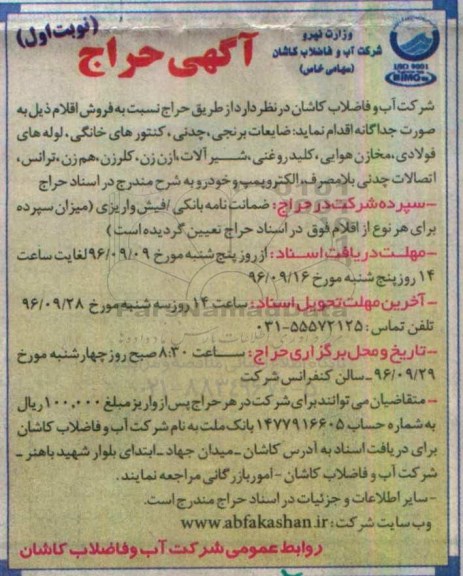 (نوبت اول)
وزارت نیرو
شرکت آب و فاضلاب کاشان
(سهامی خاص)
ISO 9001
آگهی حراج
شرکت آب و فاضلاب کاشان در نظر دارد از طریق حراج نسبت به فروش اقلام ذیل به
صورت جداگانه اقدام نماید: ضایعات برنجی، چدنی، کنتور های خانگی، لوله های
فولادی، مخازن هوایی، کلید روغنی، شیر آلات، ازن زن، کلرزن، هم زن، ترانس،
اتصالات چدنی بلامصرف، الکتروپمپ و خودرو به شرح مندرج در اسناد حراج
-سپرده شرکت در حراج: ضمانت نامه بانکی / فیش واریزی (میزان سپرده
برای هر نوع از اقلام فوق در اسناد حراج تعیین گردیده است)
-مهلت دریافت اسناد: از روز پنج شنبه مورخ ۹۶/۰۹/۰۹ لغایت ساعت
۱۴ روز پنج شنبه مورخ ۹۶/۰۹/۱۶
-آخرین مهلت تحویل اسناد: ساعت ۱۴ روز سه شنبه مورخ ۹۶/۰۹/۲۸
تلفن تماس: ۵۵۵۷۲۱۲۵-۰۳۱
-تاریخ و محل برگزاری حراج: ساعت ۸:۳۰ صبح روز چهارشنبه مورخ
۹۶/۰۹/۲۹ - سالن کنفرانس شرکت
- متقاضیان می توانند برای شرکت در هر حراج پس از واریز مبلغ ۱۰۰,۰۰۰ ریال
به شماره حساب ۱۴۷۷۹۱۶۶۰۵ بانک ملت به نام شرکت آب و فاضلاب کاشان
برای دریافت اسناد به آدرس کاشان - میدان جهاد - ابتدای بلوار شهید باهنر -
شرکت آب و فاضلاب کاشان - امور بازرگانی مراجعه نمایند.
- سایر اطلاعات و جزئیات در اسناد حراج مندرج است.
وب سایت شرکت: www.abfakashan.ir
روابط عمومی شرکت آب و فاضلاب کاشان